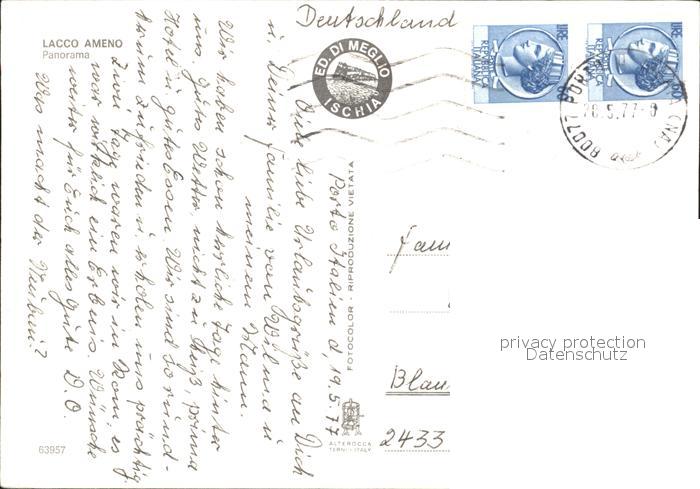 LACCO AMENO
Panorama
Deutschland
ED. DI MEGLIO
ISCHIA
REPUBBLICA
ITALIANA
LIRE
REPUBBLICA
ITALIANA
LIRE
80077 PORTO
(NA)
28.5.77-8
Porto Italien d, 19.5.77
Eure liebe Urlaubsgrüße an Dich
u. Deiner Familie von Wilma u
meinem Mann.
Wir haben schon herrliche Tage hinter
uns. Gutes Wetter, nicht zu heiß, prima
Hotel u. gutes Essen. Wir sind rund-
herum zufrieden u. erholen uns prächtig
Zum Tag waren wir in Rom; es
war wirklich ein Erlebnis. Wünsche
weiter für Euch alles Gute D. O.
Was macht der Neubau?
FOTOCOLOR - RIPRODUZIONE VIETATA
Fam
Blau
2433
ALTEROCCA
TERNI - ITALY
63957
privacy protection
Datenschutz